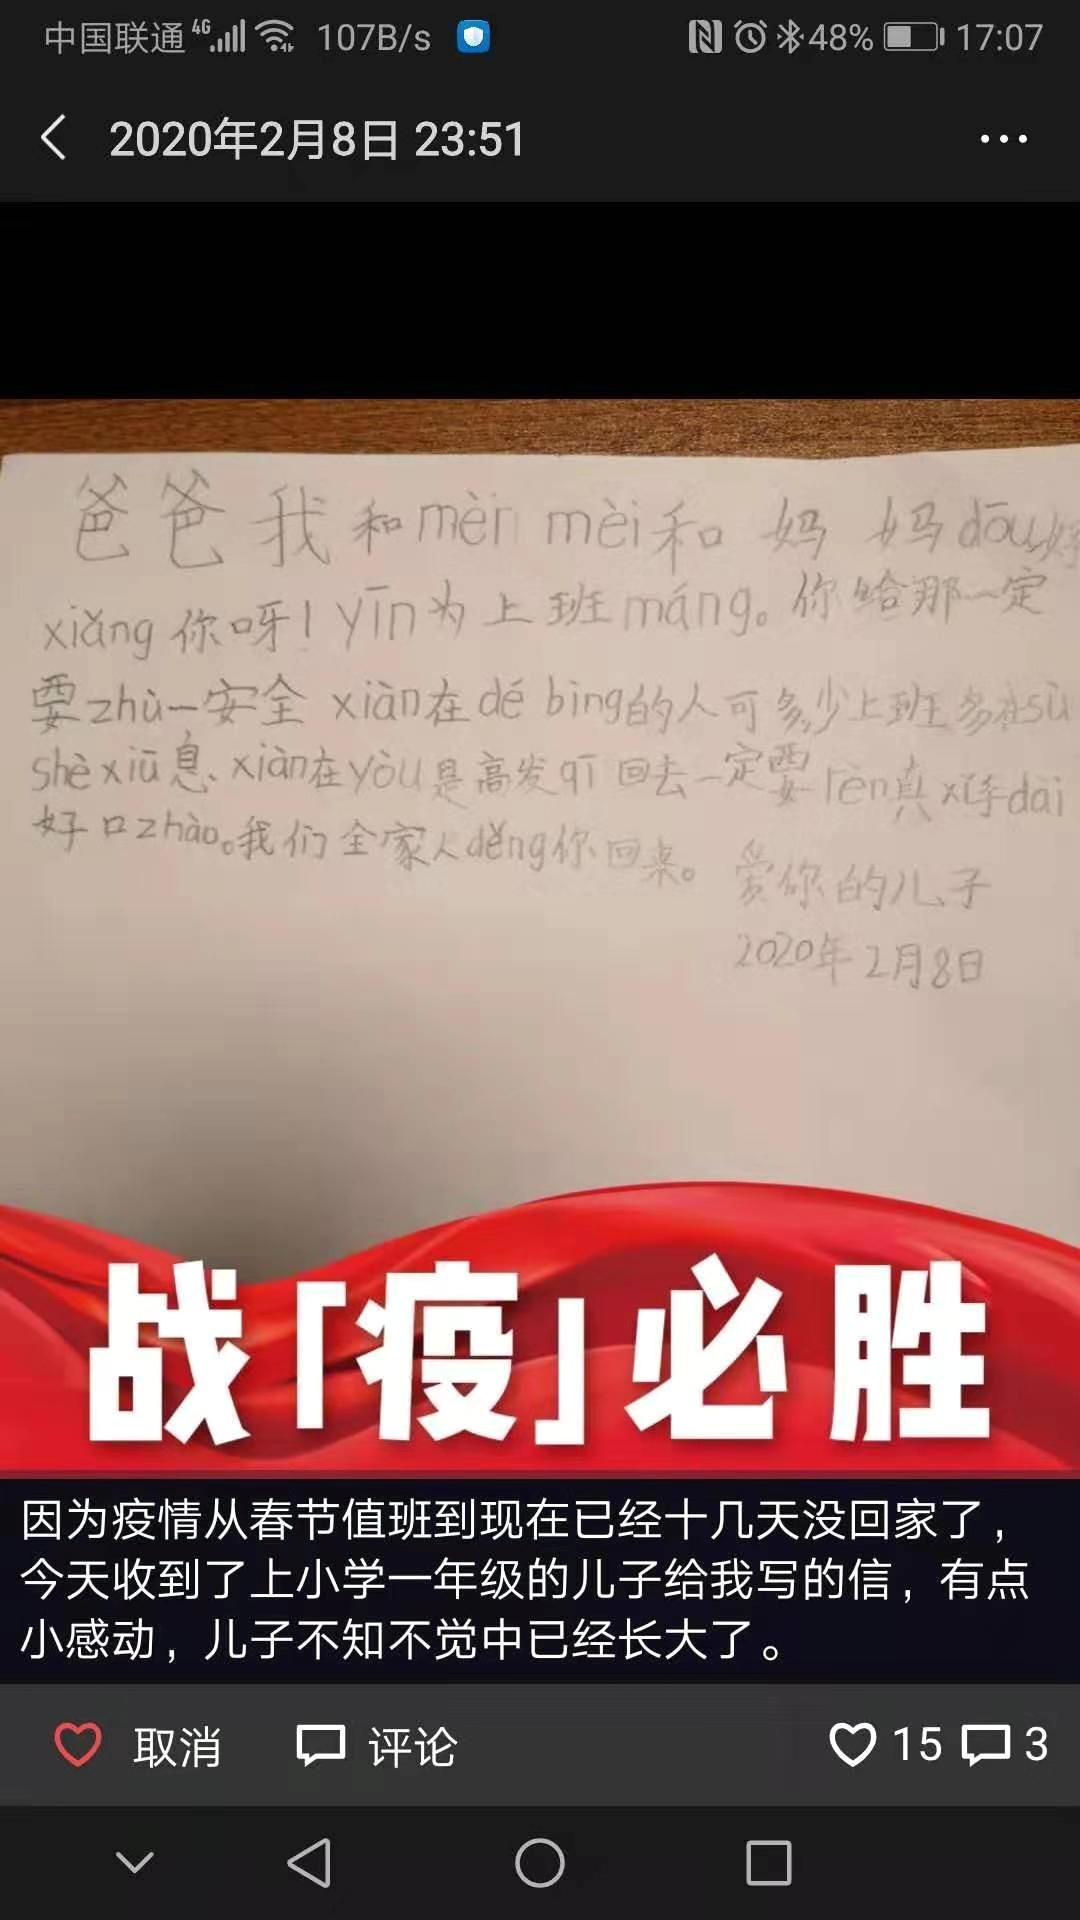 中国联通 4G 107B/s 48% 17:07
2020年2月8日 23:51
爸爸我和mèi mèi和妈妈dōu好
xiǎng你呀!yīn为上班máng。你给那一定
要zhù一安全 xiàn在dé bìng的人可多,少上班多在sù
shè xiū息、xiàn在yòu是高发qī回去一定要rèn真xǐ手dài
好口zhào。我们全家人děng你回来。
爱你的儿子
2020年2月8日
战「疫」必胜
因为疫情从春节值班到现在已经十几天没回家了,
今天收到了上小学一年级的儿子给我写的信,有点
小感动,儿子不知不觉中已经长大了。
取消 评论 15 3